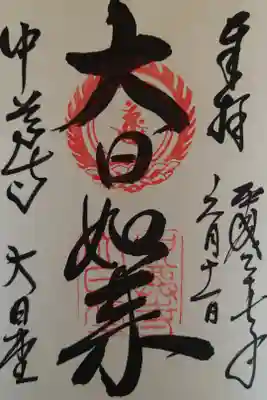 奉拝
平成二十七年
六月十一日
大日如来
中尊寺 大日堂